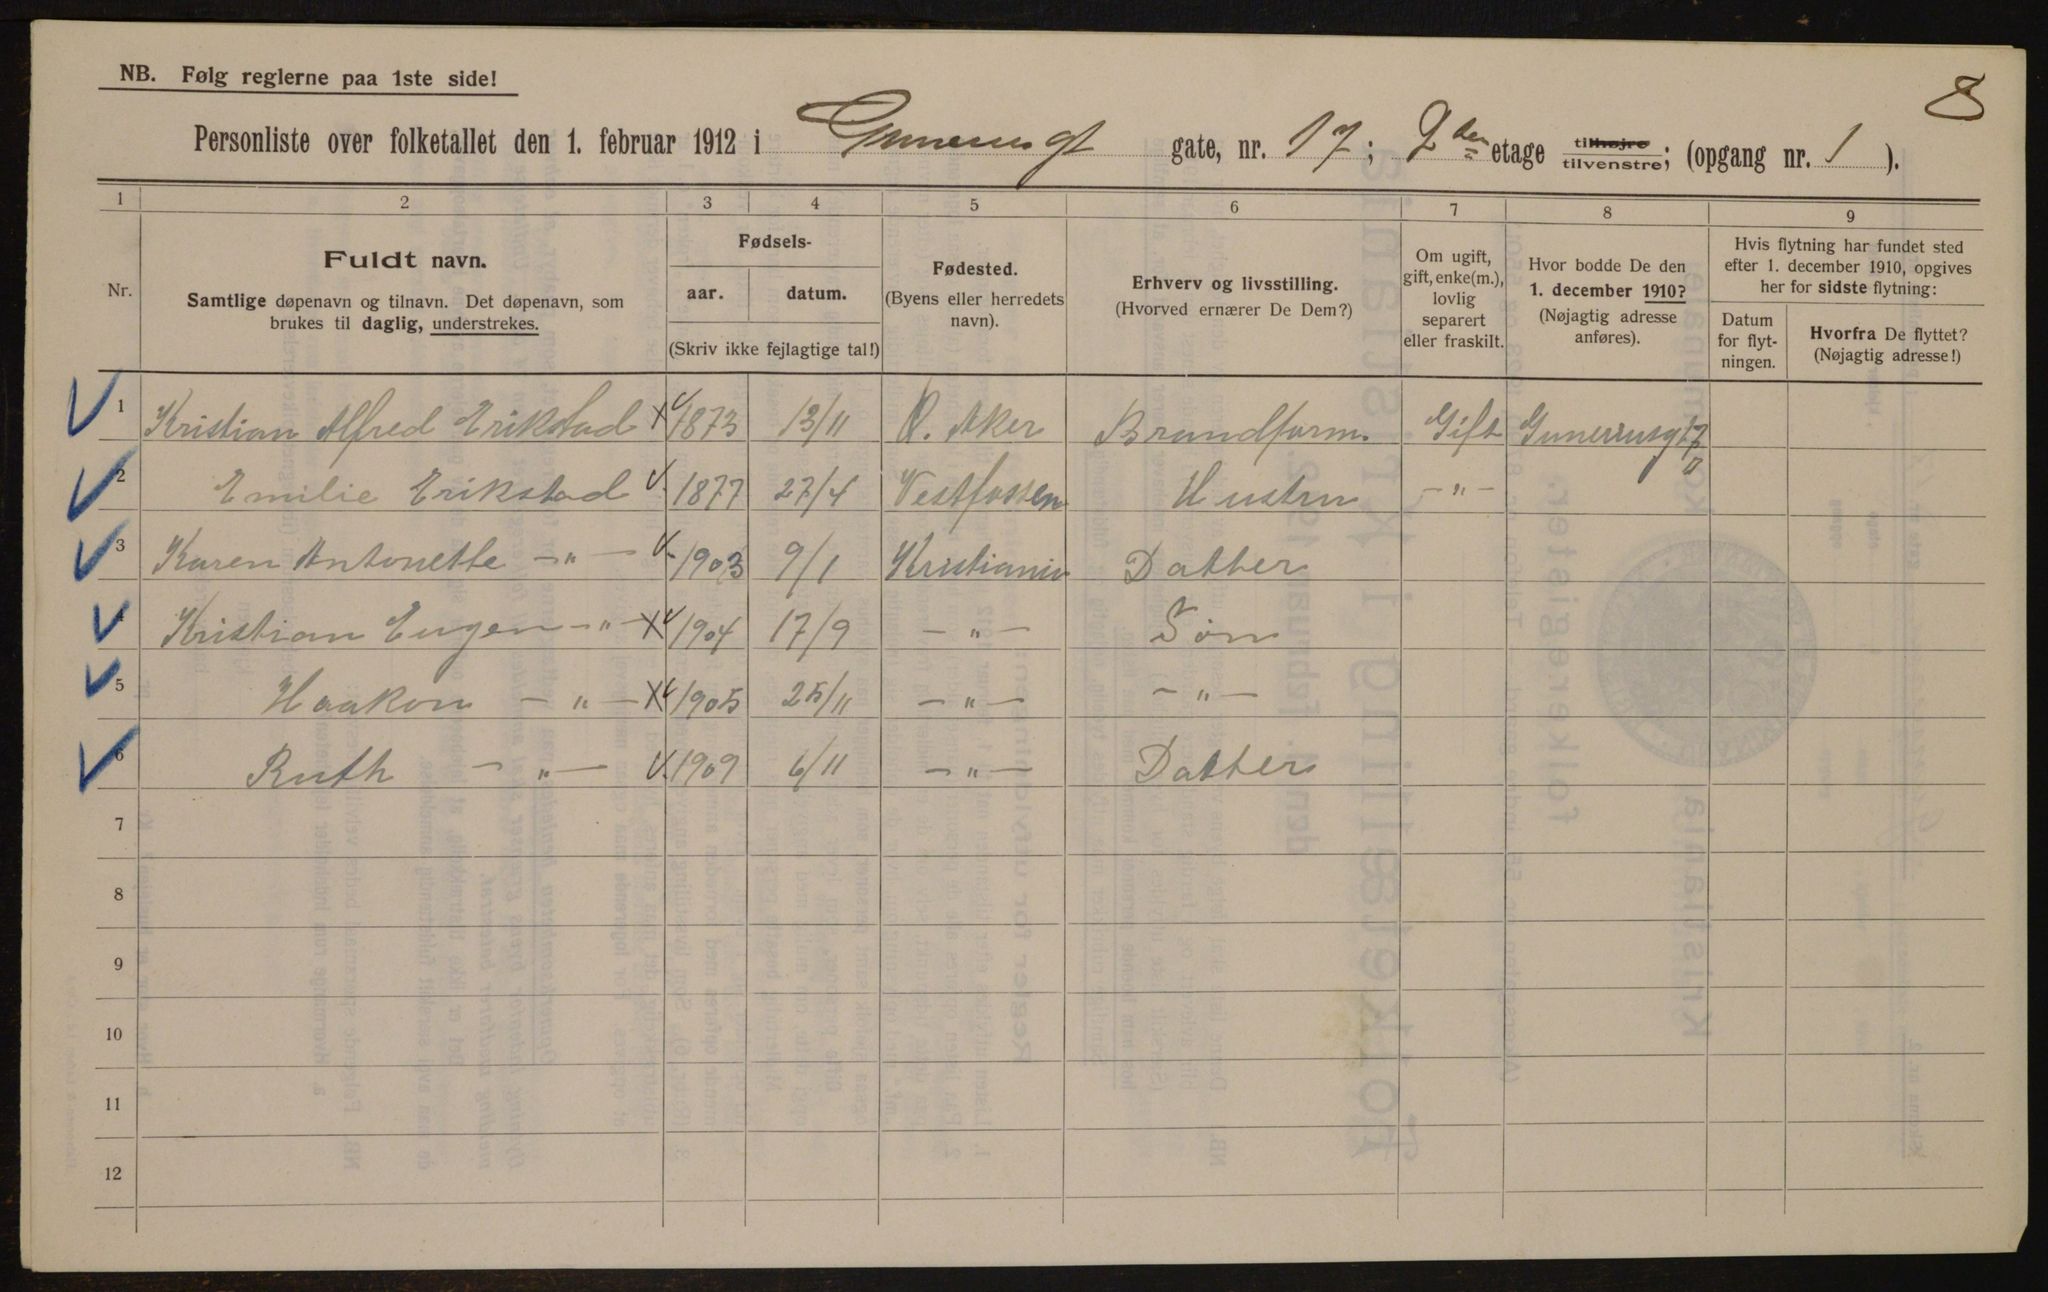 8
NB. Følg reglerne paa 1ste side!
Personliste over folketallet den 1. februar 1912 i Gunerusgt gate, nr. 17; 2den etage tilhøjre tilvenstre; (opgang nr. 1).
1 2 3 4 5 6 7 8 9
Nr.
Fuldt navn.
Samtlige døpenavn og tilnavn. Det døpenavn, som
brukes til daglig, understrekes.
Fødsels-
aar. datum.
(Skriv ikke fejlagtige tal!)
Fødested.
(Byens eller herredets
navn).
Erhverv og livsstilling.
(Hvorved ernærer De Dem?)
Om ugift,
gift, enke(m.),
lovlig
separert
eller fraskilt.
Hvor bodde De den
1. december 1910?
(Nøjagtig adresse
anføres).
Hvis flytning har fundet sted
efter 1. december 1910, opgives
her for sidste flytning:
Datum
for flyt-
ningen.
Hvorfra De flyttet?
(Nøjagtig adresse!)
1 Kristian Alfred Erikstad 1873 13/11 Ø. Aker Brandform. Gift Gunerrusgt 17 II
2 Emilie Erikstad 1877 27/4 Vestfossen Hustru -"-
3 Karen Antonette -"- 1903 9/1 Kristiania Datter
4 Kristian Eugen -"- 1904 17/9 -"- Søn
5 Haakon -"- 1905 25/11 -"- -"-
6 Ruth -"- 1909 6/11 -"- Datter
7
8
9
10
11
12